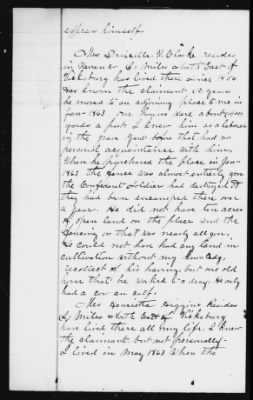 express himself.
Mrs Priscilla V. Clarke resides
in Warren Co. Miles East of
Vicksburg has lived there since 1854
has known the claimant 12 years
he moved to an adjoining place to me in
Jan 1863 Our houses were about 400
yards apart I knew him as a laborer
in the years before that had no
personal acquaintance with him.
When he purchased the place in Jan
1863 the fence was almost entirely gone
the Confederate Soldier had destroyed it
they had been encamped there over
a year. He did not have ten acres
of open land on the place and the
fencing on that was nearly all gone.
He could not have had any land in
cultivation without my knowledge
I recollect of his having but one old
gone that he worked to a dray. He only
had a cow an calf.
Mrs. Henrietta Higgins Resides
Miles North East of Vicksburg
have lived there all my life. I knew
the claimant but not personally.
I lived in May 1863 When the